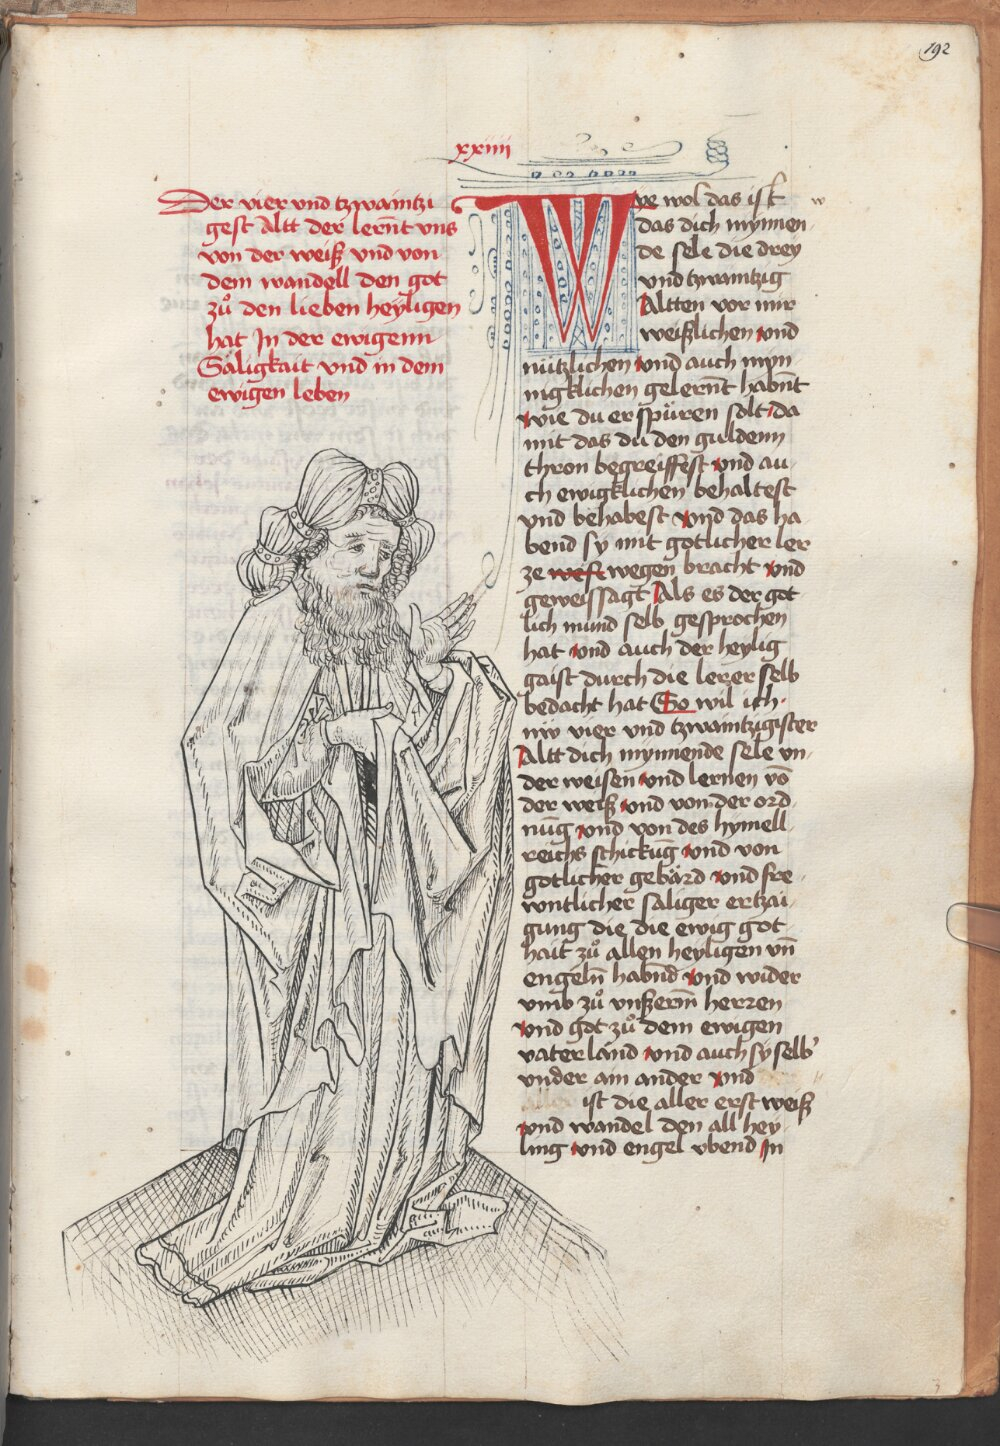 192
xxiiii
Der vier vnd tzwaintzi
gest Altt der lernt vns
von der weiß vnd von
dem wandell den got
zů den lieben heyligen
hat In der ewigenn
Säligkait vnd in dem
ewigen leben
Wye wol das ist
w
das dich mynnen
de sele die drey
vnd tzwaintzig
Altten vor mir
weißlichen vnd
nützlichen vnd auch myn
nigklichen gelernt habnt
wie du erspüren solt da
mit das du den guldenn
thron begreiffest vnd au
ch ewigklichen behaltest
vnd behabest vnd das ha
bend sy mit gotlicher ler
ze west wegen bracht vnd
geweissagt Als es der got
lich mund selb gesprochen
hat vnd auch der heylig
gaist durch die lerer selb
bedacht hat So wil ich
vier vnd tzwaintzigister
Altt dich mynnende sele vn
der weisen vnd lernen vō
der weiß vnd von der ord
nūg vnd von des hymell
reichs schickūg vnd von
gotlicher gebärd vnd fre
wntlicher säliger ertzai
gung die die ewig got
hait zů allen heyligen vn̄
engeln̄ habnd vnd wider
vmb zů vnßerm̄ herren
vnd got zů dem ewigen
vaterland vnd auch sy selb
vnder ain ander vnd
ist die aller erst weiß
vnd wandel den all hey
ling vnd engel vbend In